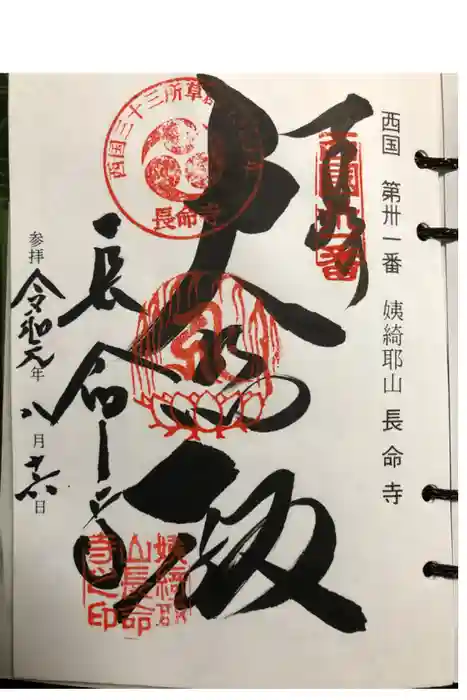 西国 第卅一番 姨綺耶山 長命寺
大悲殿
長命寺
参拝 令和元年八月十六日
西国三十三所草
長命寺
姨綺耶
山長命
寺之印